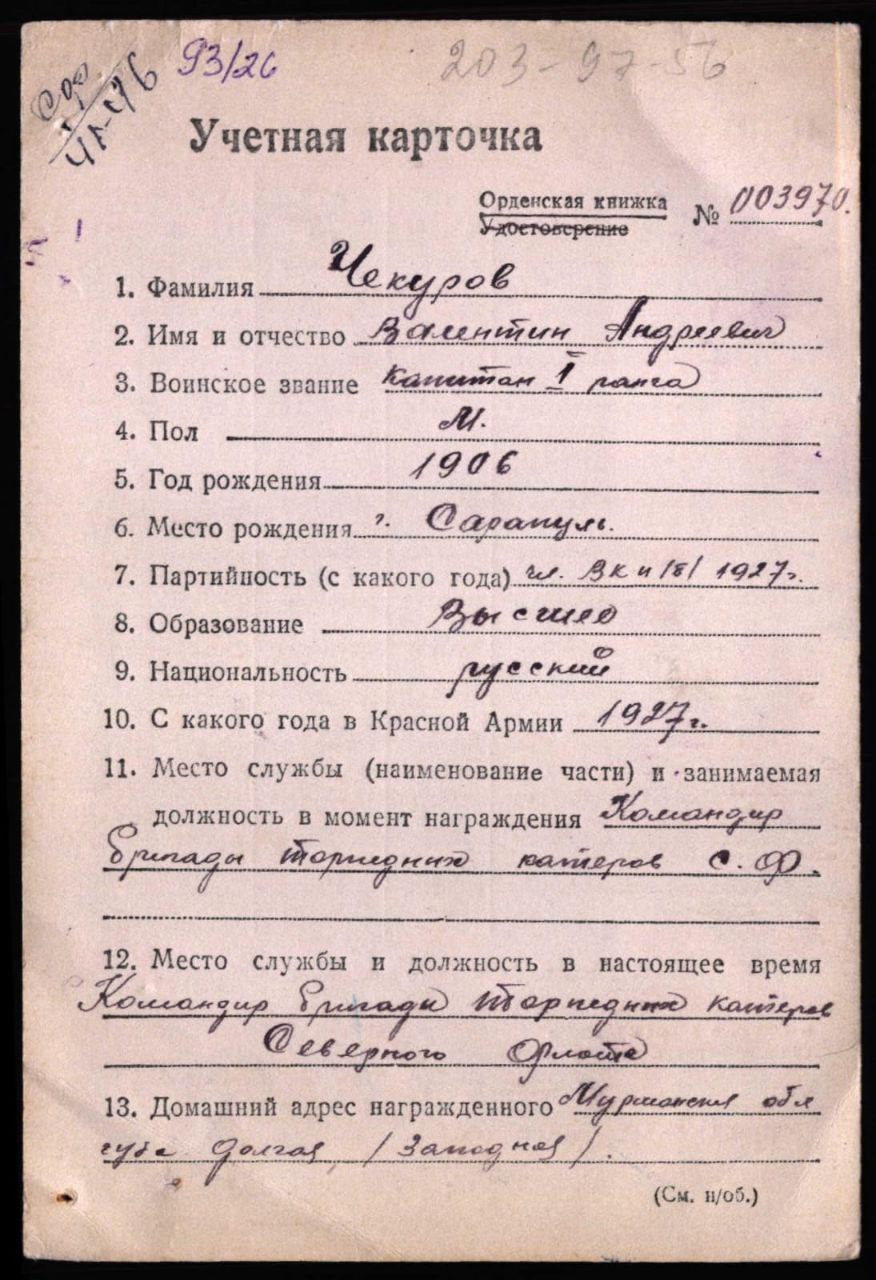 93/26
203-97-56
Учетная карточка
Орденская книжка
Удостоверение
№ 003970.
1. Фамилия Чекуров
2. Имя и отчество Валентин Андреевич
3. Воинское звание капитан I ранга
4. Пол М.
5. Год рождения 1906
6. Место рождения г. Сарапуль.
7. Партийность (с какого года) чл. ВКП/б/ 1927г.
8. Образование Высшее
9. Национальность русский
10. С какого года в Красной Армии 1927г.
11. Место службы (наименование части) и занимаемая
должность в момент награждения Командир
бригады торпедных катеров С.Ф.
12. Место службы и должность в настоящее время
Командир бригады торпедных катеров
Северного Флота
13. Домашний адрес награжденного Мурманская обл
губа Долгая, /Западная/.
(См. н/об.)